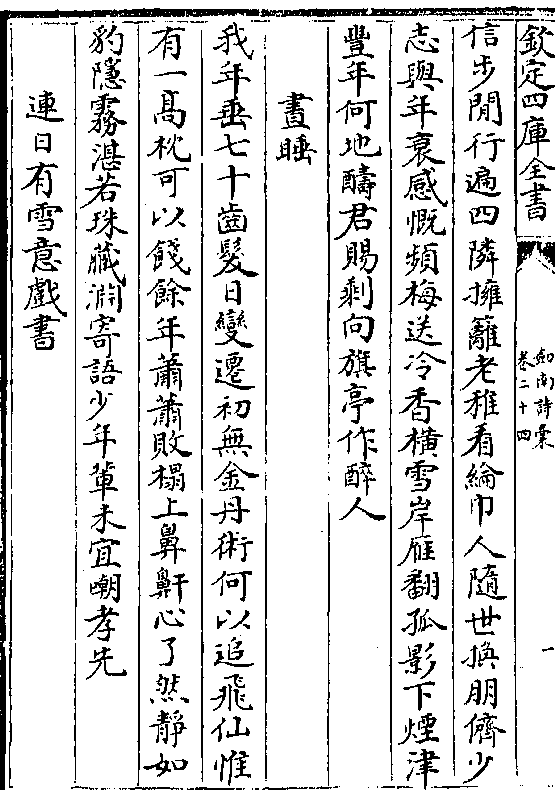 欽定四庫全書
劍南詩稾
卷二十四
一
信步閒行遍四隣擁籬老稚看綸巾人隨世換朋儕少
志與年衰感慨頻梅送冷香橫雪岸雁翻孤影下煙津
豐年何地醻君賜剩向旗亭作醉人
晝睡
我年垂七十齒髮日變遷初無金丹術何以追飛仙惟
有一高枕可以餞餘年蕭蕭敗榻上鼻鼾心了然靜如
豹隱霧湛若珠藏淵寄語少年輩未宜嘲孝先
連日有雪意戲書